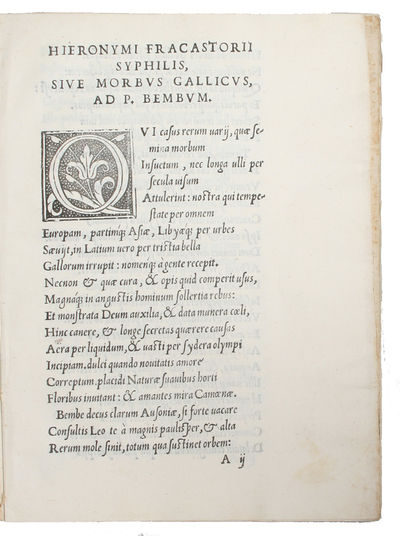 HIERONYMI FRACASTORII
SYPHILIS,
SIVE MORBVS GALLICVS,
AD P. BEMBVM.
QVI casus rerum uarij, quæ se-
mina morbum
Insuetum, nec longa ulli per
secula uisum
Attulerint: nostra qui tempe-
state per omnem
Europam, partimq́; Asiæ, Libyæq́; per urbes
Sæuijt, in Latium uero per tristia bella
Gallorum irrupit: nomenq́; à gente recepit.
Necnon & quæ cura, & opis quid comperit usus,
Magnaq́; in angustis hominum sollertia rebus:
Et monstrata Deum auxilia, & data munera cœli,
Hinc canere, & longe secretas quærere causas
Aera per liquidum, & uasti per sydera olympi
Incipiam. dulci quando nouitatis amore
Correptum, placidi Naturæ suauibus horti
Floribus inuitant: & amantes mira Camœnæ.
Bembe decus clarum Ausoniæ, si forte uacare
Consultis Leo te à magnis paulisper, & alta
Rerum mole sinit, totum qua sustinet orbem:
A ij